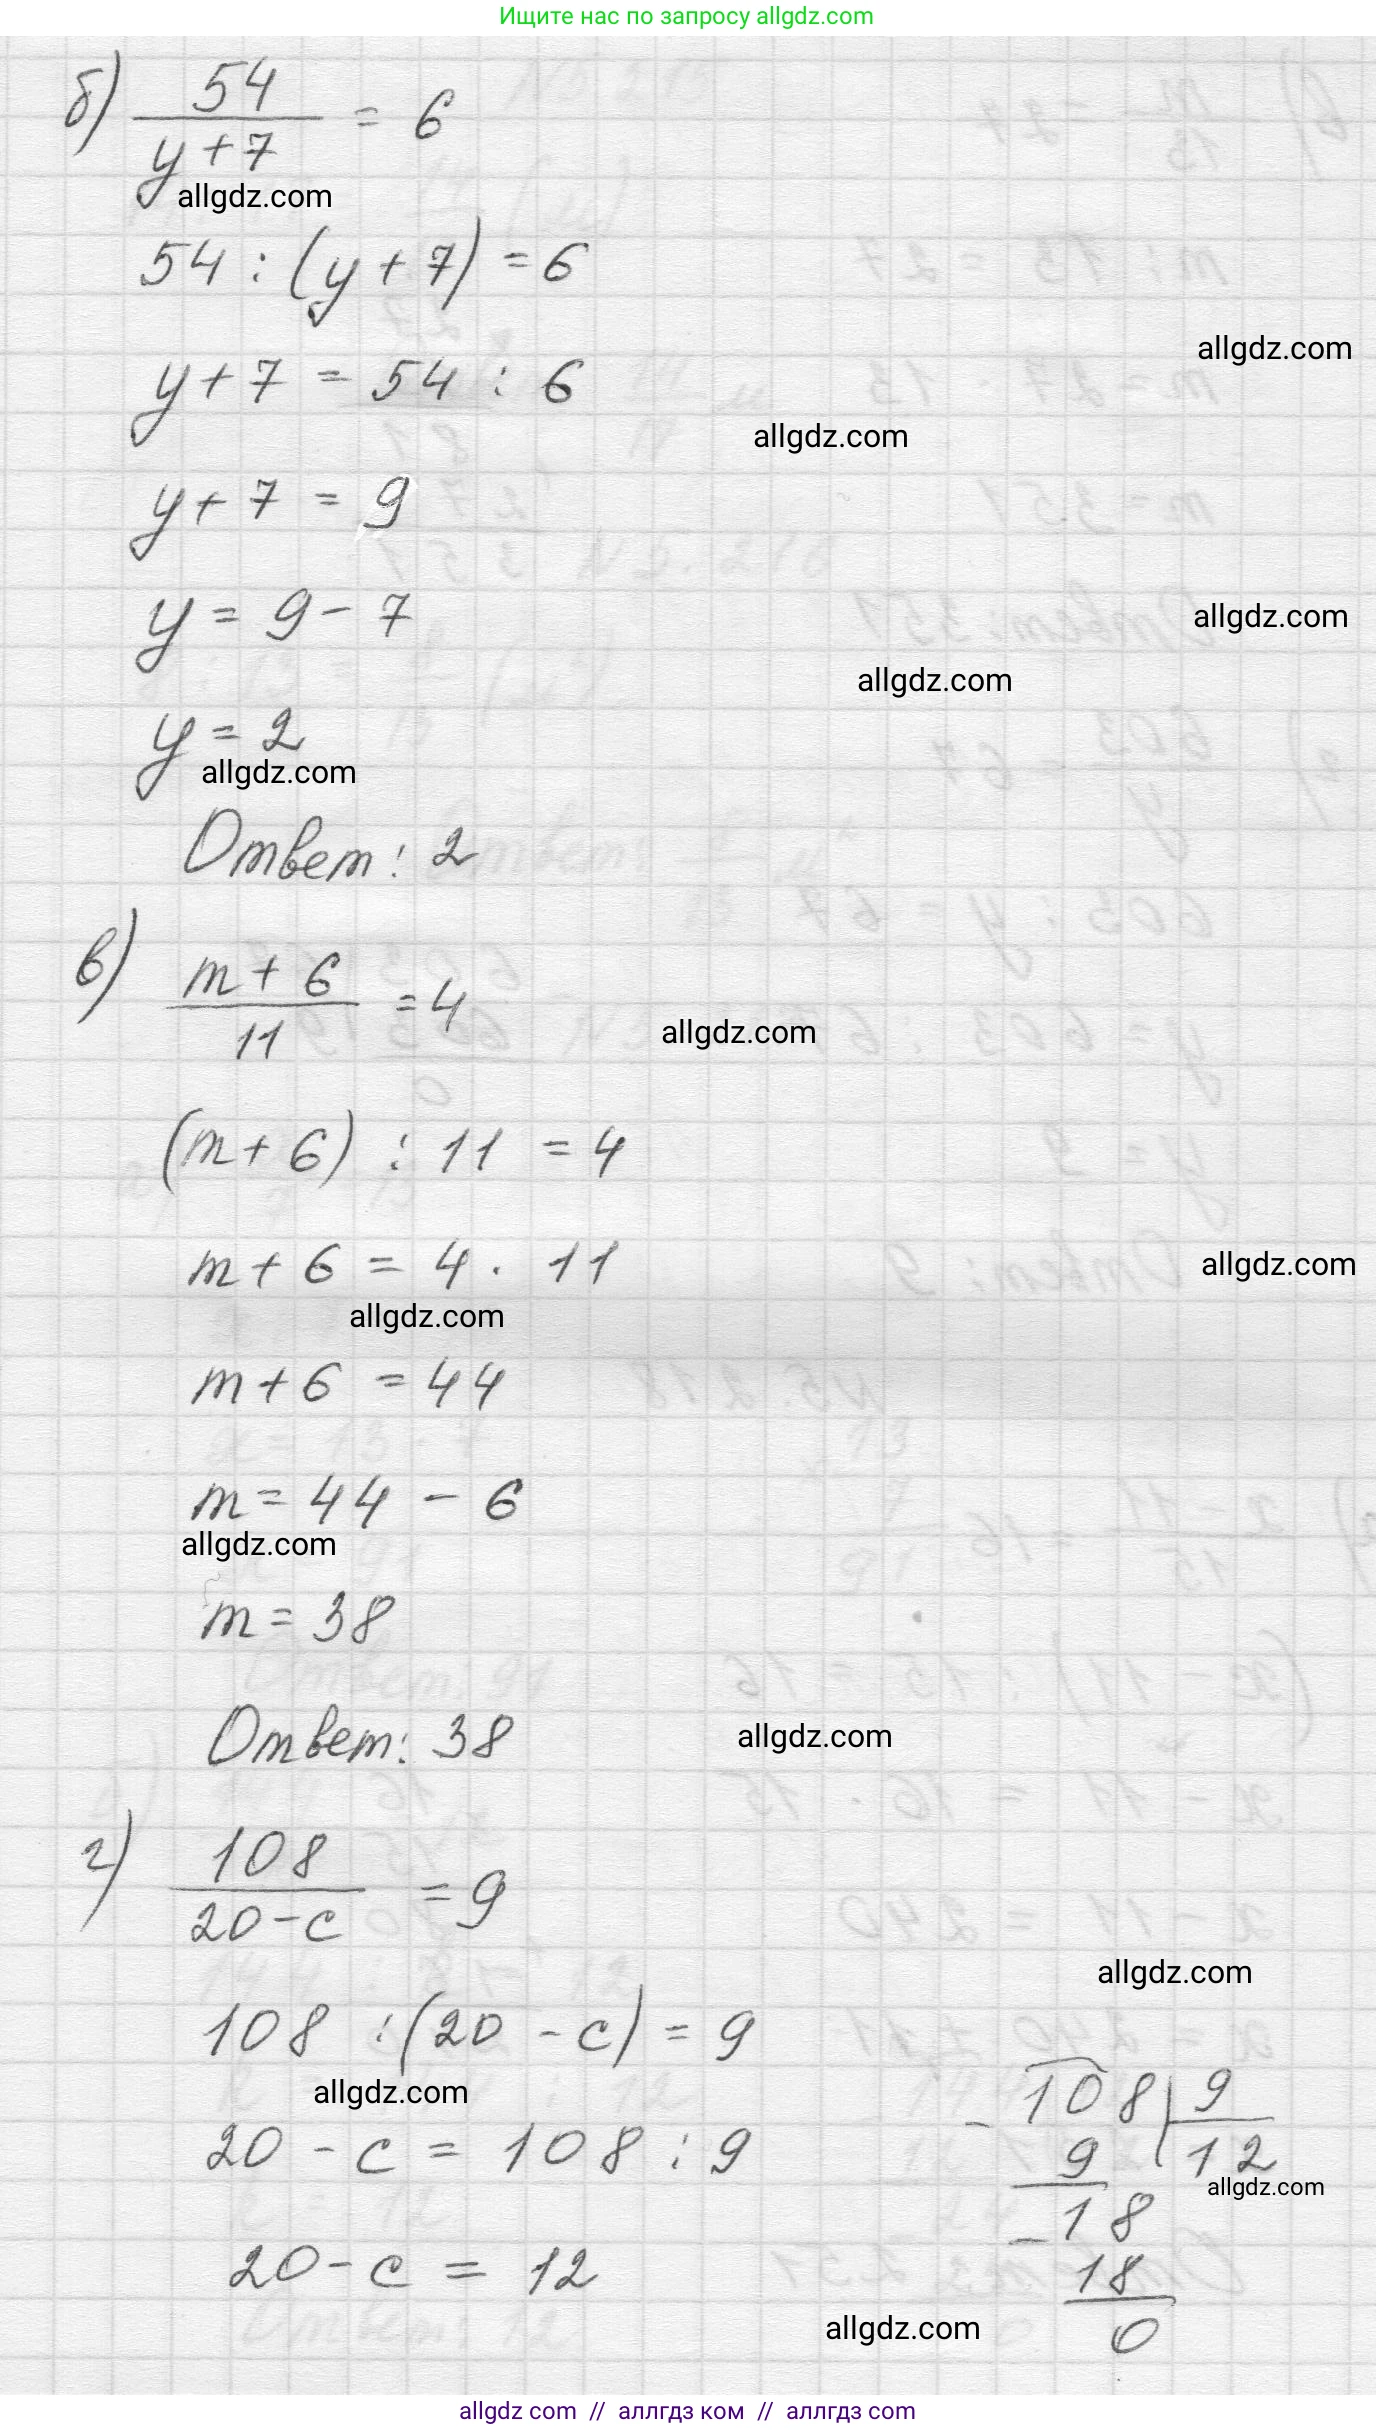 Ищите нас по запросу allgdz.com
б) 54 / (y + 7) = 6
allgdz.com
54 : (y + 7) = 6
allgdz.com
y + 7 = 54 : 6
allgdz.com
y + 7 = 9
y = 9 - 7
allgdz.com
allgdz.com
y = 2
allgdz.com
Ответ: 2
в) (m + 6) / 11 = 4
allgdz.com
(m + 6) : 11 = 4
m + 6 = 4 · 11
allgdz.com
allgdz.com
m + 6 = 44
m = 44 - 6
allgdz.com
m = 38
Ответ: 38
allgdz.com
г) 108 / (20 - c) = 9
allgdz.com
108 : (20 - c) = 9
allgdz.com
20 - c = 108 : 9
20 - c = 12
- 108 | 9
9 | 12
allgdz.com
- 18
18
0
allgdz.com
allgdz com // аллгдз ком // аллгдз com